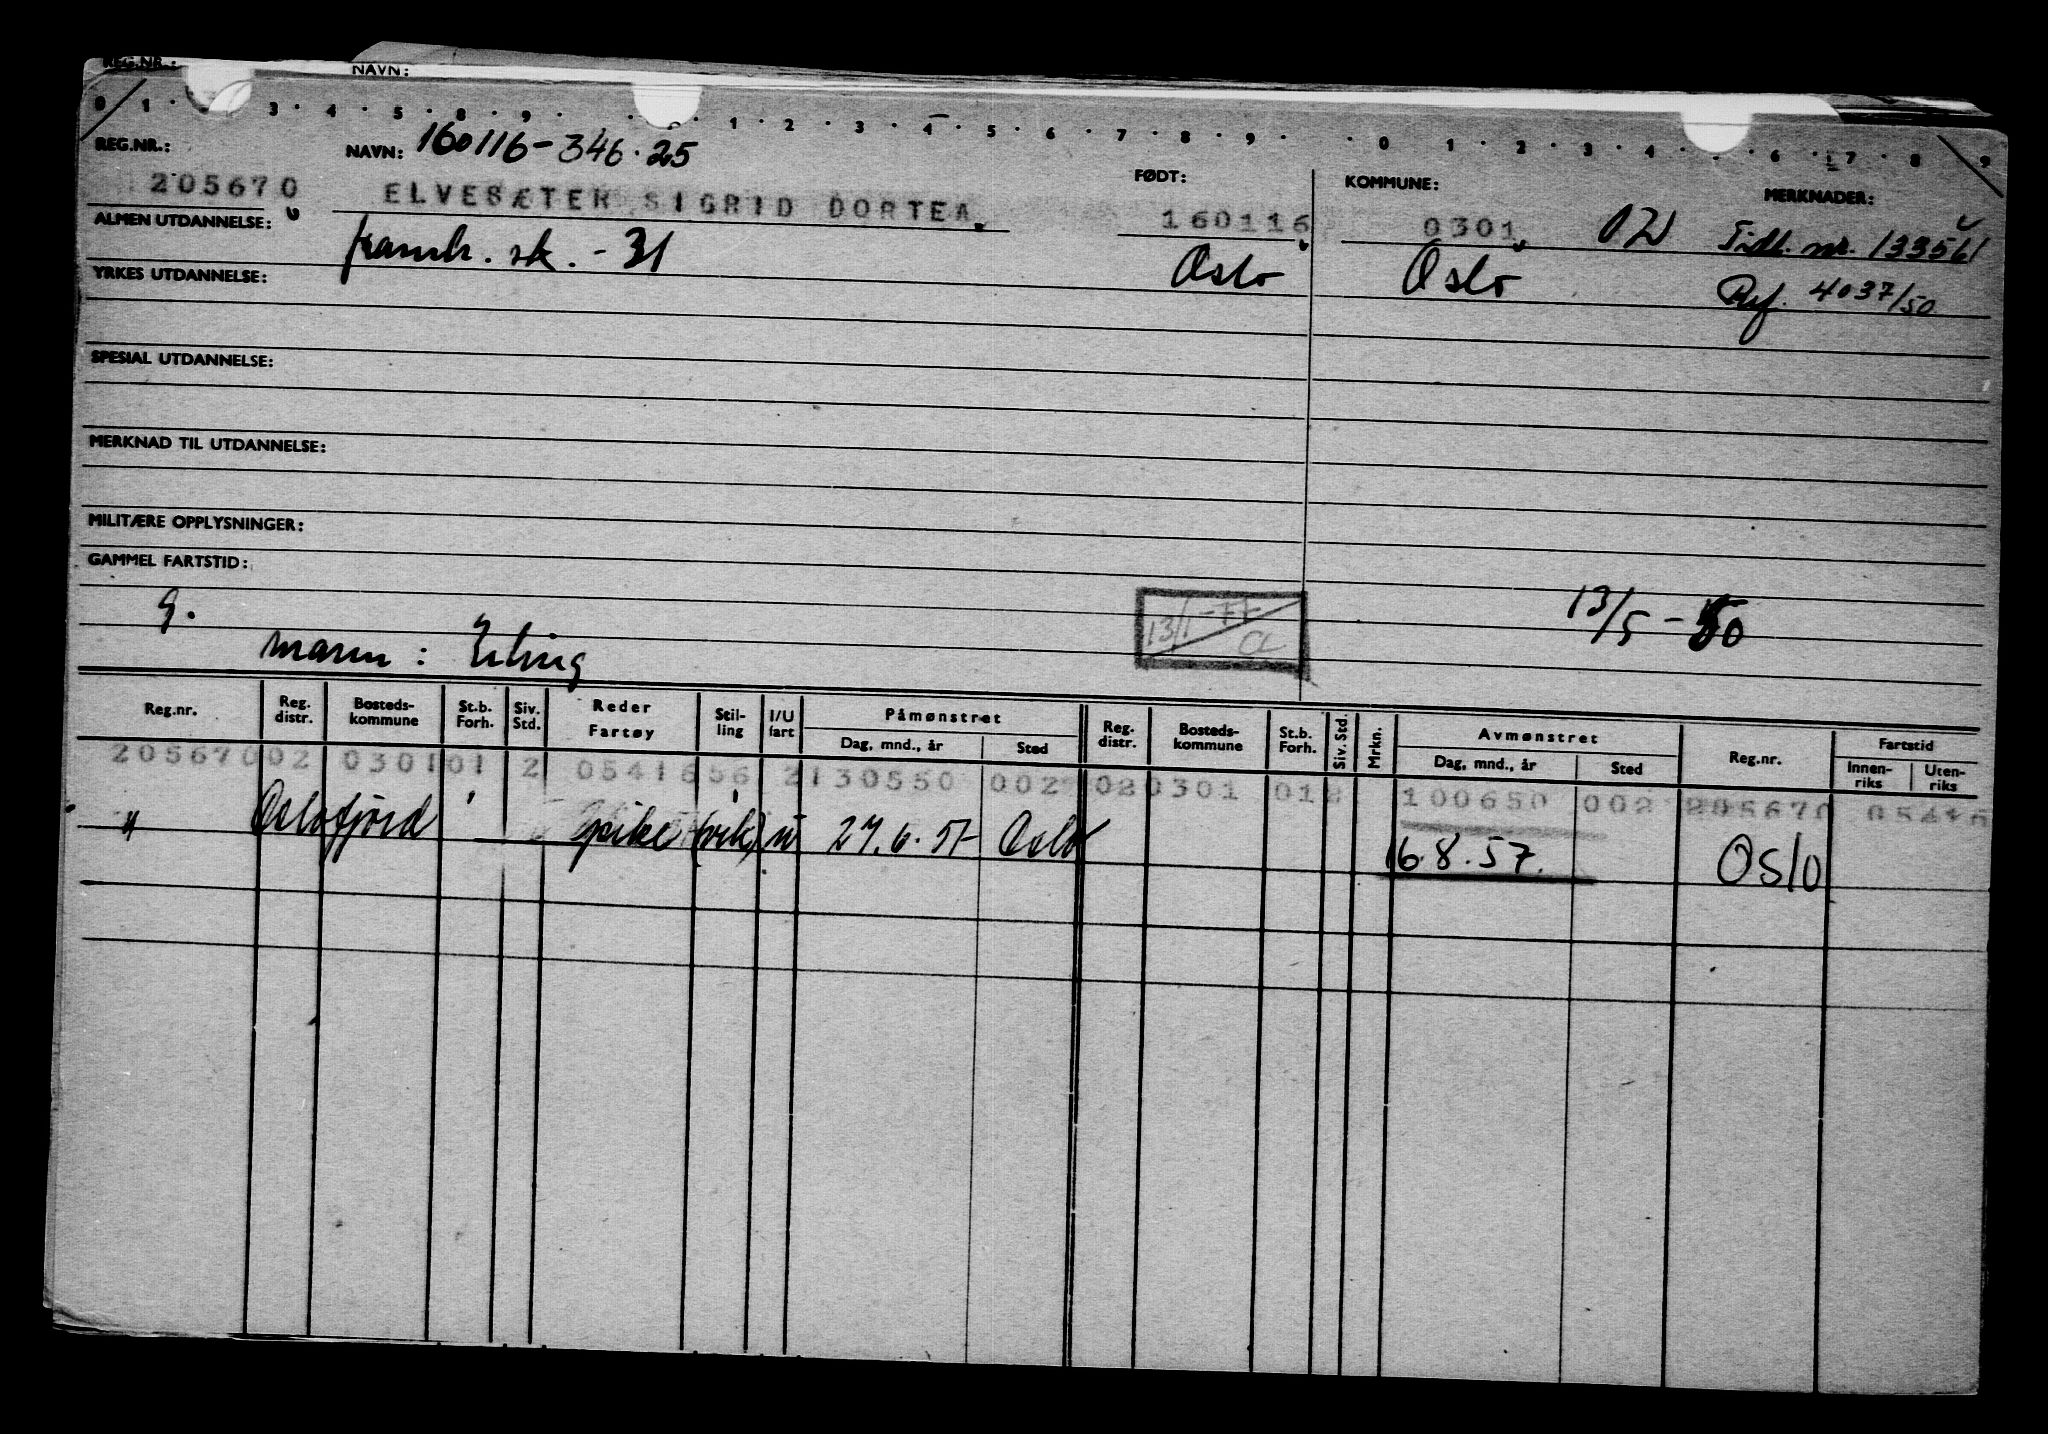 REG.NR.: NAVN:
0 1 3 4 5 8 9 1 2 3 4 5 6 7 8 9 0 1 2 3 4 6 7 8 9
REG.NR.: NAVN: 160116-346.25 FØDT: KOMMUNE: MERKNADER:
205670 ELVESÆTER SIGRID DORTEA. 160116 0301 02 Tidl. nr. 133561
ALMEN UTDANNELSE: framh. sk. - 31 Oslo Oslo Ref. 4037/50
YRKES UTDANNELSE:
SPESIAL UTDANNELSE:
MERKNAD TIL UTDANNELSE:
MILITÆRE OPPLYSNINGER:
GAMMEL FARTSTID:
g. 13/1-77 CL 13/5-50
mann: Erling
Reg.nr. Reg. distr. Bosteds-kommune St.b. Forh. Siv. Std. Reder Fartøy Stil-ling I/U fart Påmønstret Dag, mnd., år Sted Reg. distr. Bosteds-kommune St.b. Forh. Siv. Std. Mrkn. Avmønstret Dag, mnd., år Sted Reg.nr. Fartstid Innen-riks Uten-riks
205670 02 0301 01 2 05416 56 2 130550 002 02 0301 01 2 100650 002 205670
" Oslofjord ' pike (vik) u 27.6.57 Oslo 16.8.57. Oslo